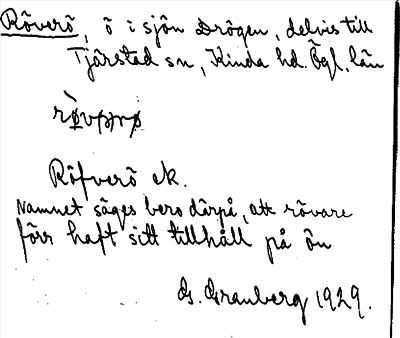 Röverö, ö i sjön Drögen, delvis till
Tjärstad sn, Kinda hd. Ögl. län
Röfverö ek.
Namnet säges bero därpå, att rövare
förr haft sitt tillhåll på ön
G. Granberg 1929.